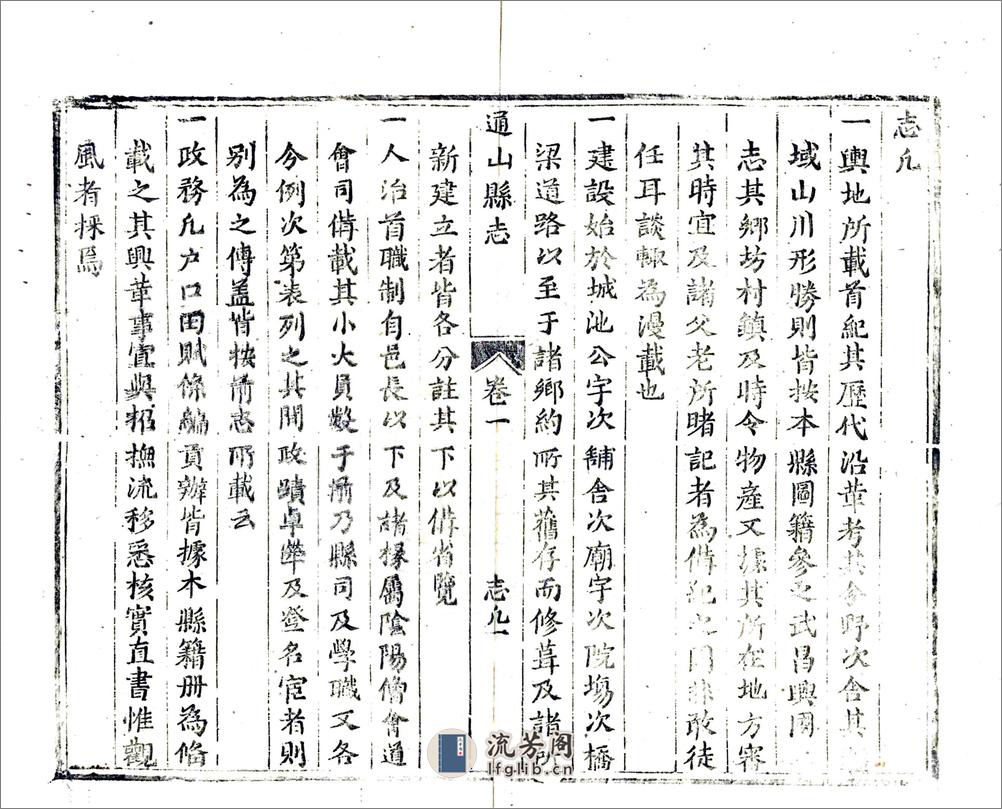 志凡
一輿地所載首紀其歷代沿革考其分野次含其
域山川形勝則皆按本縣圖籍參之武昌興國
志其鄉坊村鎮及時令物產又據其所在地方審
其時宜及諸父老所睹記者為俻紀之固非敢徒
任耳談輙為漫載也
一建設始於城池公宇次舖舍次廟宇次院塲次橋
梁道路以至于諸鄉約所其舊存而修葺及諸
通山縣志
卷一
志凡一
新建立者皆各分註其下以俻省覽
一人治首職制自邑長以下及諸掾屬陰陽僧會道
會司俻載其小大員數于冊乃縣司及學職又各
今例次第表列之其間政蹟卓犖及登名宦者則
別為之傳盖皆按舊志所載云
一政務凡户口田賦條編貢辦皆據木縣籍册為俻
載之其興革事宜與招撫流移悉核實直書惟觀
風者採焉
流芳阁
lfglib.cn